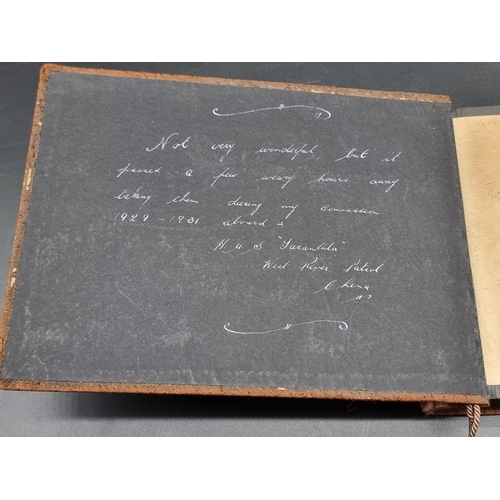 Not very wonderful, but it
passed a few weary hours away
taking them during my commission
1929 - 1931 aboard -
H M S "Tarantula"
West River Patrol
China